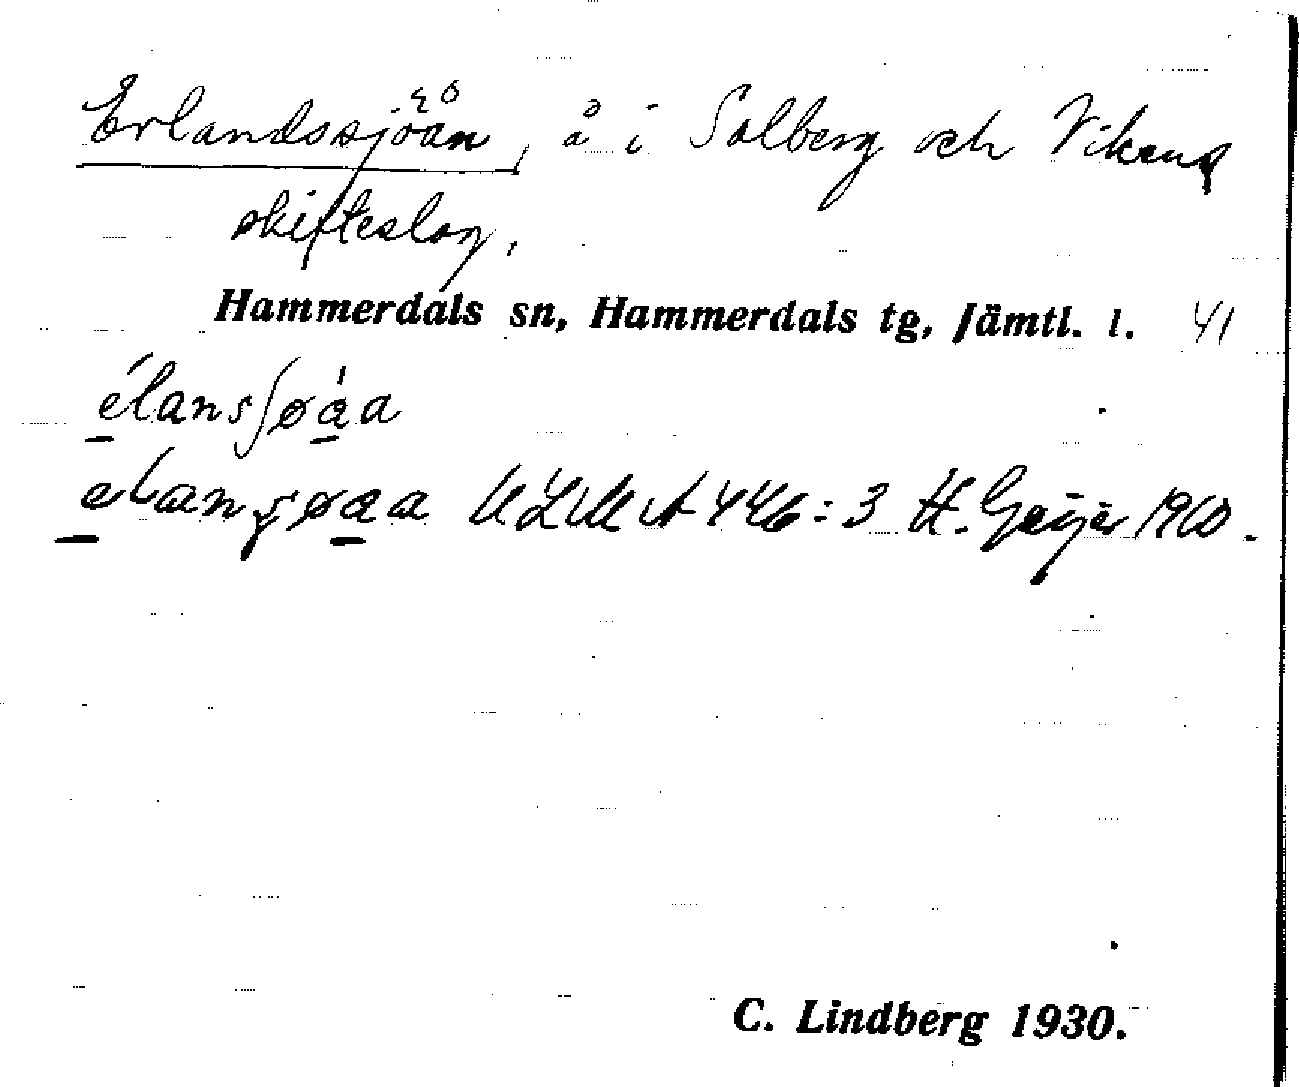 Erlandssjöån, å i Solberg och Vikens
skifteslag,
Hammerdals sn, Hammerdals tg, Jämtl. l. 41
élansʃøa̍a
elansøaa ULMA 446:3 H. Geijer 1910.
C. Lindberg 1930.